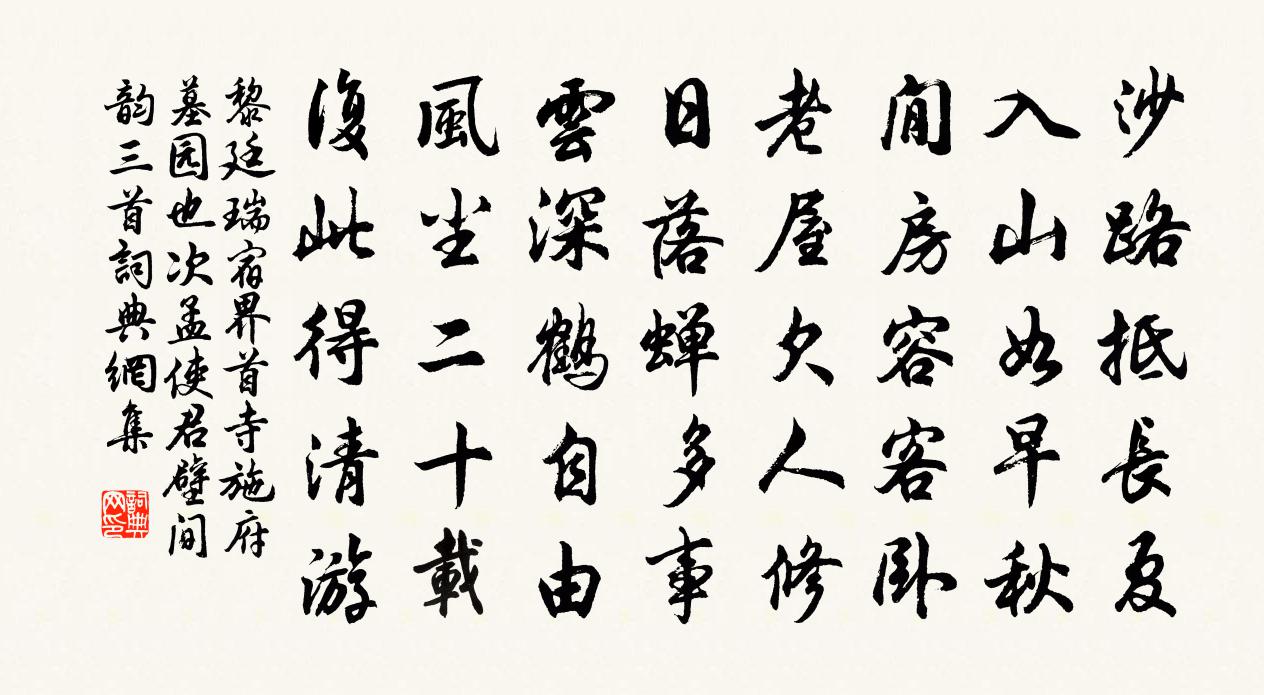 沙路抵長夏
入山如早秋
閒房容客卧
老屋欠人修
日落蝉多事
雲深鶴自由
風尘二十載
復此得清游
黎廷瑞宿界首寺施府
墓园也次孟使君壁间
韵三首詞典網集
詞典网印